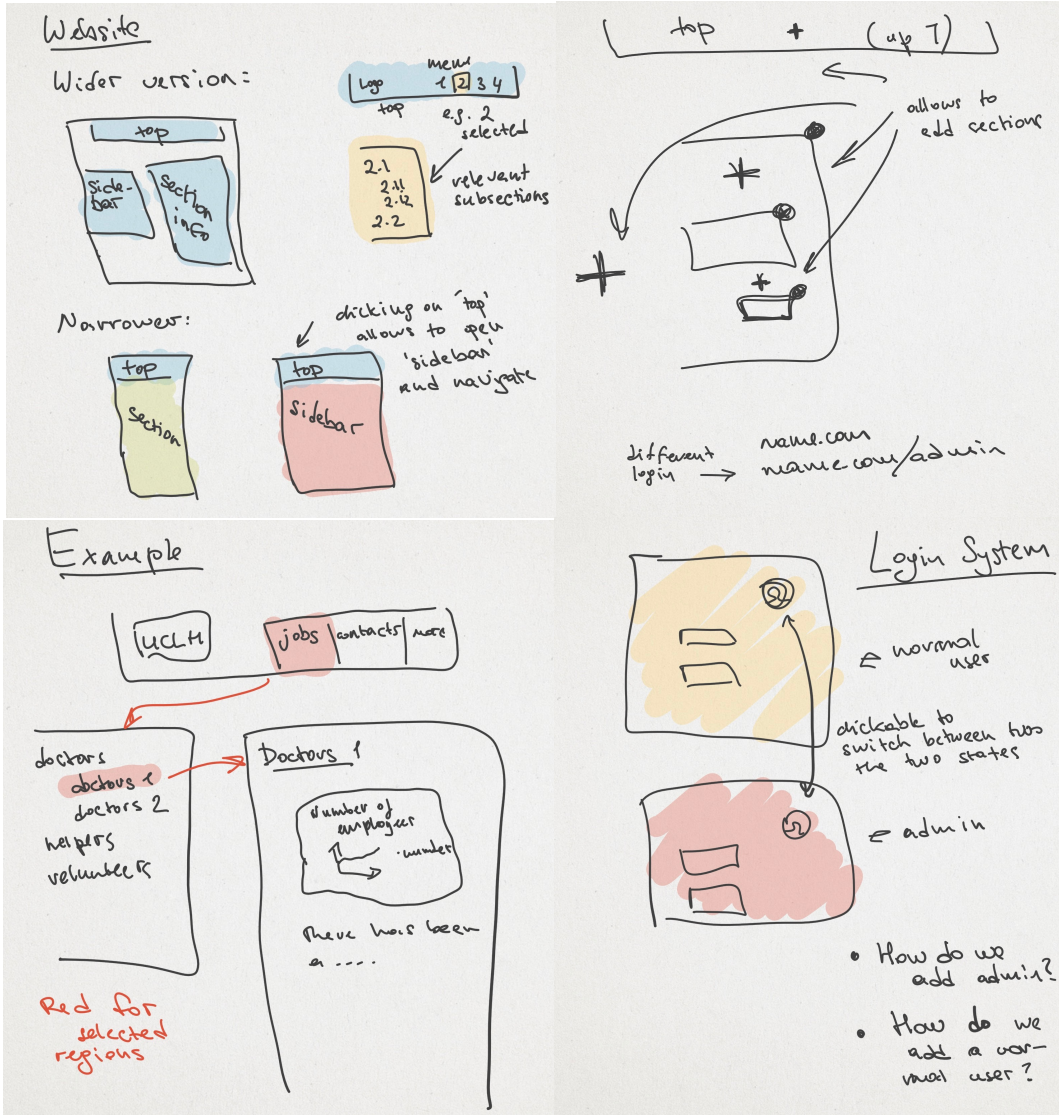 Website
Wider version:
top
side-
bar
section
info
menu
Logo 1 2 3 4
top
e.g. 2
selected
2.1
2.11
2.12
2.2
relevant
subsections
Narrower:
top
section
clicking on 'top'
allows to open
'sidebar'
and navigate
top
sidebar
top + (up 7)
allows to
add sections
+
+
+
different
login →
name.com
name.com/admin
Example
UCLH
jobs
contacts
more
doctors
doctors 1
doctors 2
helpers
volunteers
Doctors 1
Number of
employees
number
There has been
a ....
Red for
selected
regions
Login System
normal
user
clickable to
switch between two
the two states
admin
• How do we
add admin?
• How do we
add a nor-
mal user?